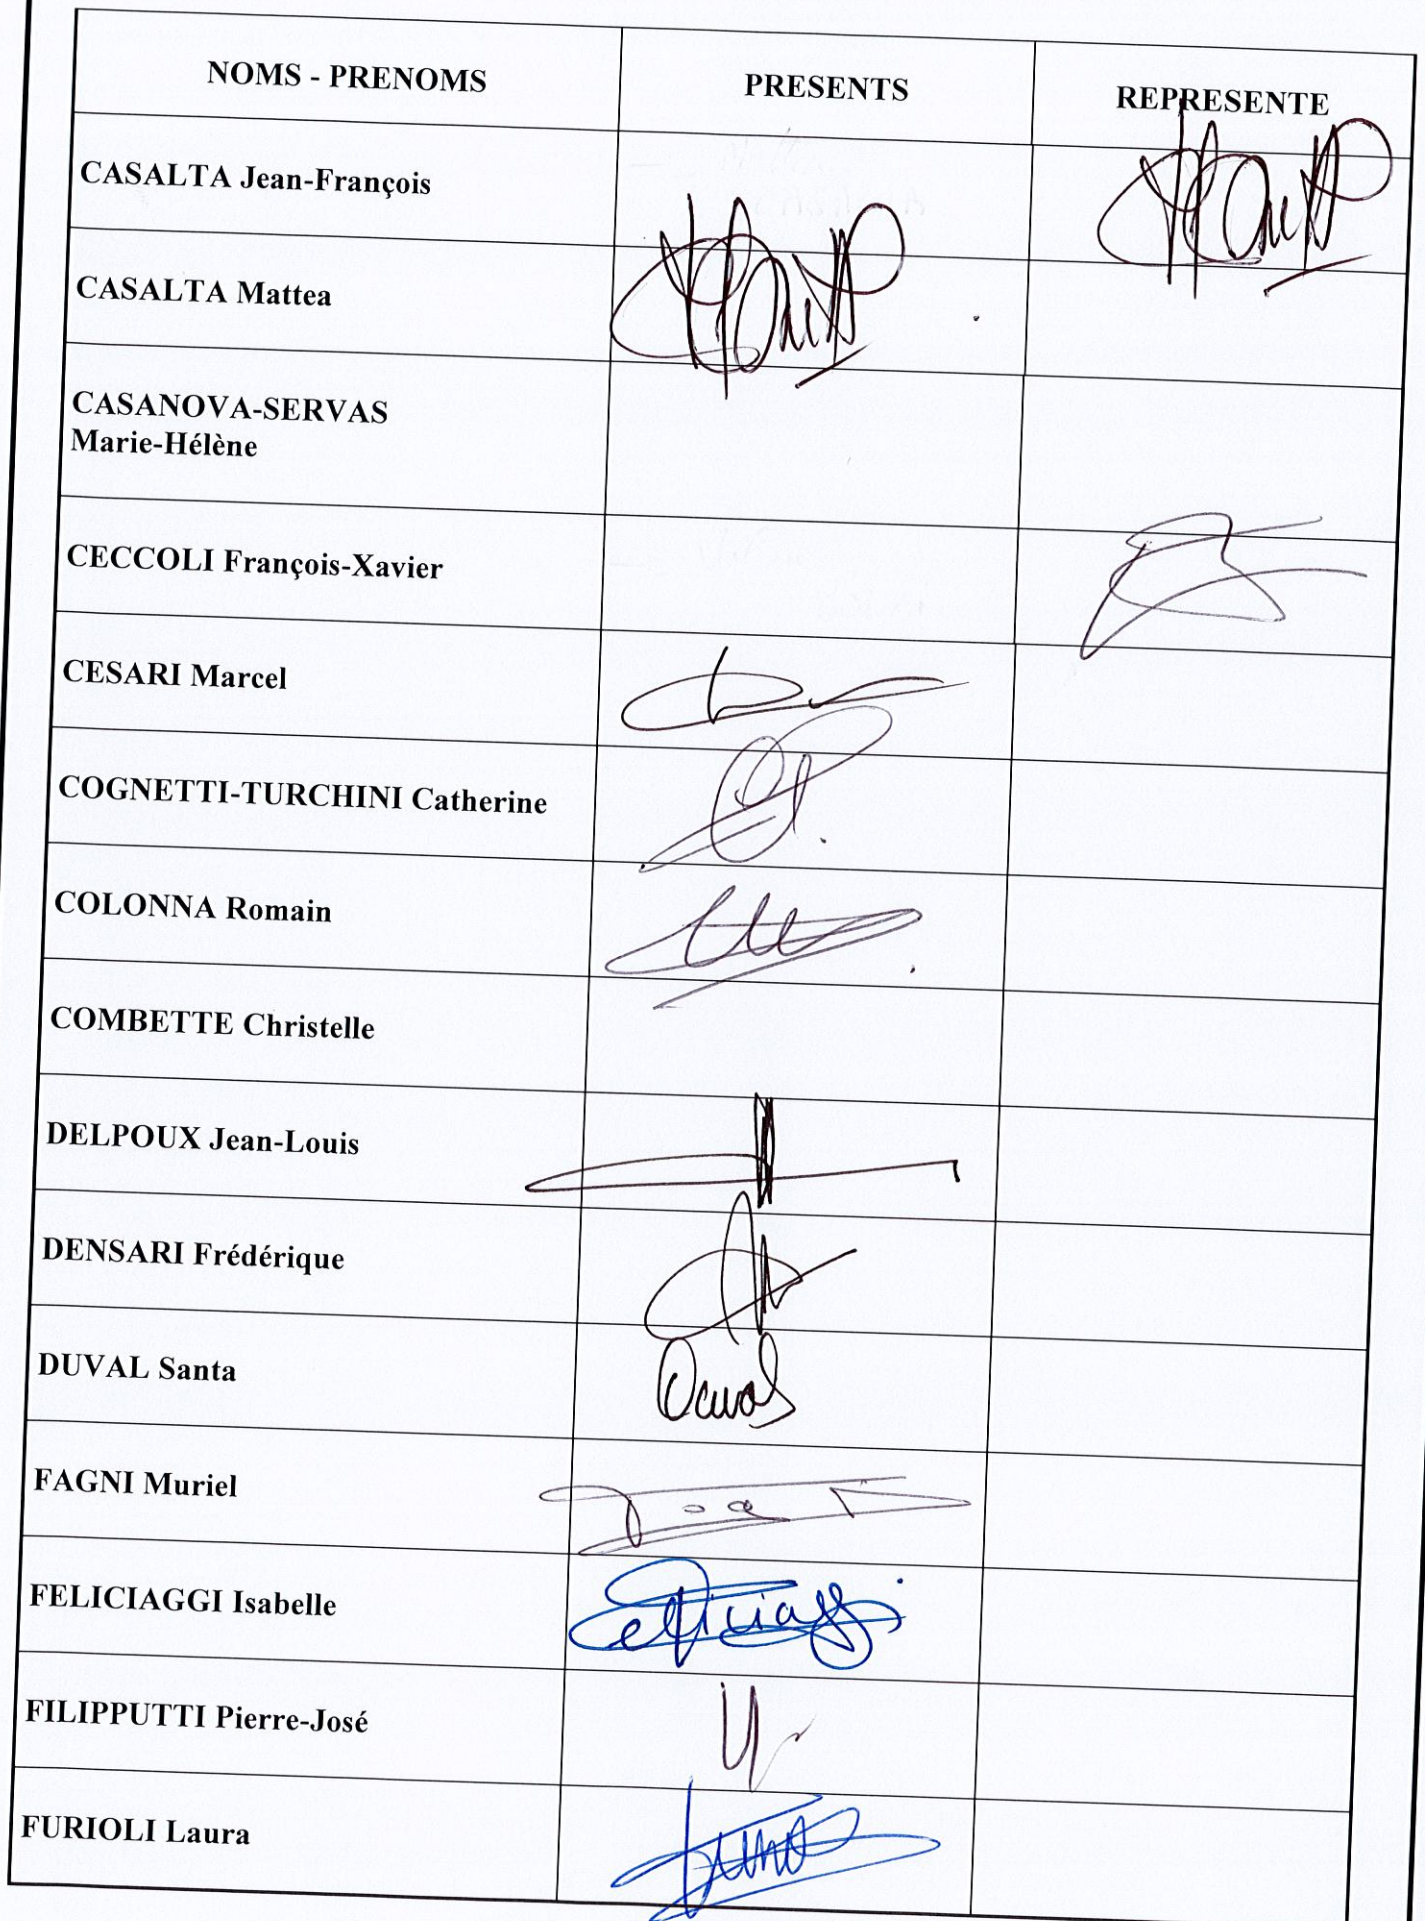 NOMS - PRENOMS PRESENTS REPRESENTE
CASALTA Jean-François
CASALTA Mattea
CASANOVA-SERVAS
Marie-Hélène
CECCOLI François-Xavier
CESARI Marcel
COGNETTI-TURCHINI Catherine
COLONNA Romain
COMBETTE Christelle
DELPOUX Jean-Louis
DENSARI Frédérique
DUVAL Santa
FAGNI Muriel
FELICIAGGI Isabelle
FILIPPUTTI Pierre-José
FURIOLI Laura